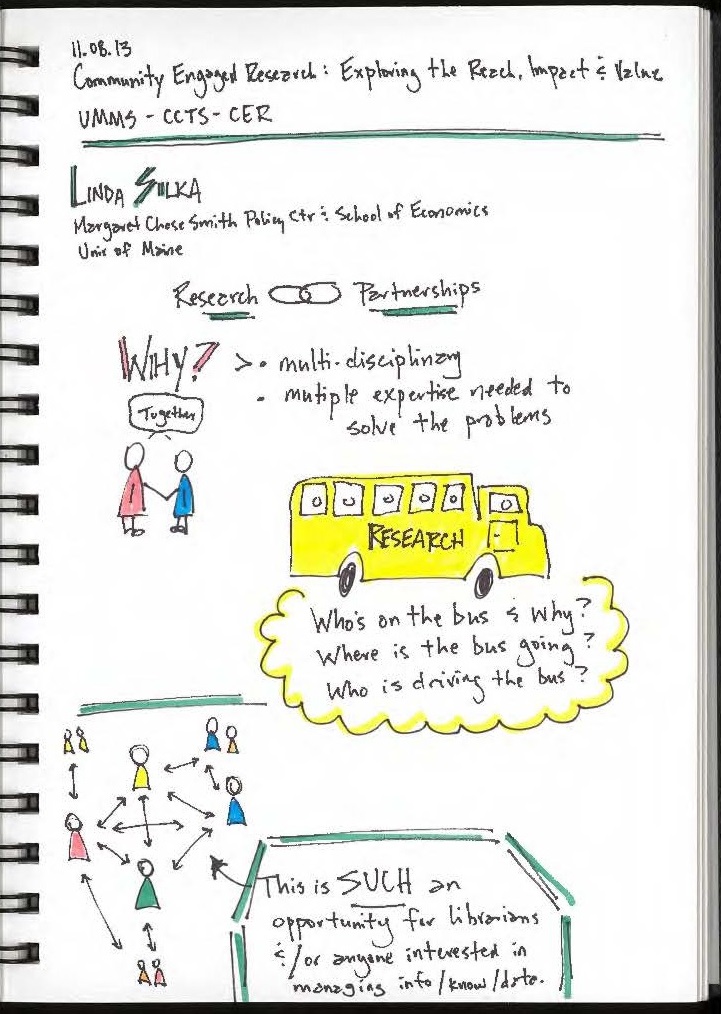 11.08.13
Community Engaged Research: Exploring the Reach, Impact & Value
UMMS - CCTS - CER
LINDA SILKA
Margaret Chase Smith Policy Ctr & School of Economics
Univ of Maine
Research Partnerships
WHY? > • multi-disciplinary
• mutiple expertise needed to
solve the problems
Together
RESEARCH
Who's on the bus & why?
Where is the bus going?
Who is driving the bus?
This is SUCH an
opportunity for librarians
&/or anyone interested in
managing info/know/data.